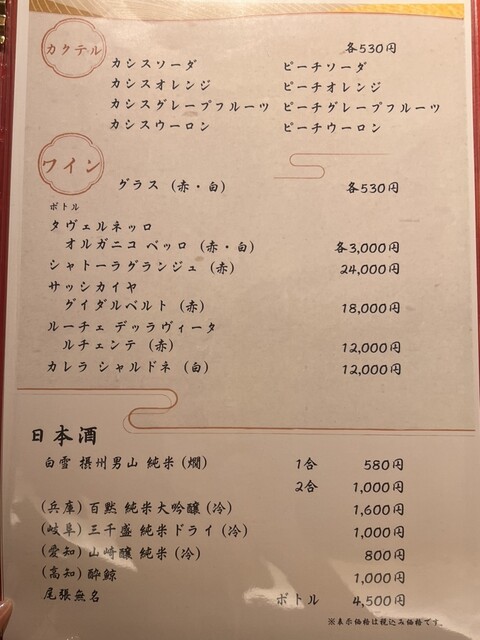 カクテル
各530円
カシスソーダ ピーチソーダ
カシスオレンジ ピーチオレンジ
カシスグレープフルーツ ピーチグレープフルーツ
カシスウーロン ピーチウーロン
ワイン
グラス (赤・白) 各530円
ボトル
タヴェルネッロ
オルガニコ ベッロ (赤・白) 各3,000円
シャトーラグランジュ (赤) 24,000円
サッシカイヤ
グイダルベルト (赤) 18,000円
ルーチェ デッラヴィータ
ルチェンテ (赤) 12,000円
カレラ シャルドネ (白) 12,000円
日本酒
白雪 摂州男山 純米 (燗) 1合 580円
2合 1,000円
(兵庫) 百黙 純米大吟醸 (冷) 1,600円
(岐阜) 三千盛 純米ドライ (冷) 1,000円
(愛知) 山﨑醸 純米 (冷) 800円
(高知) 酔鯨 1,000円
尾張無名 ボトル 4,500円
※表示価格は税込み価格です。